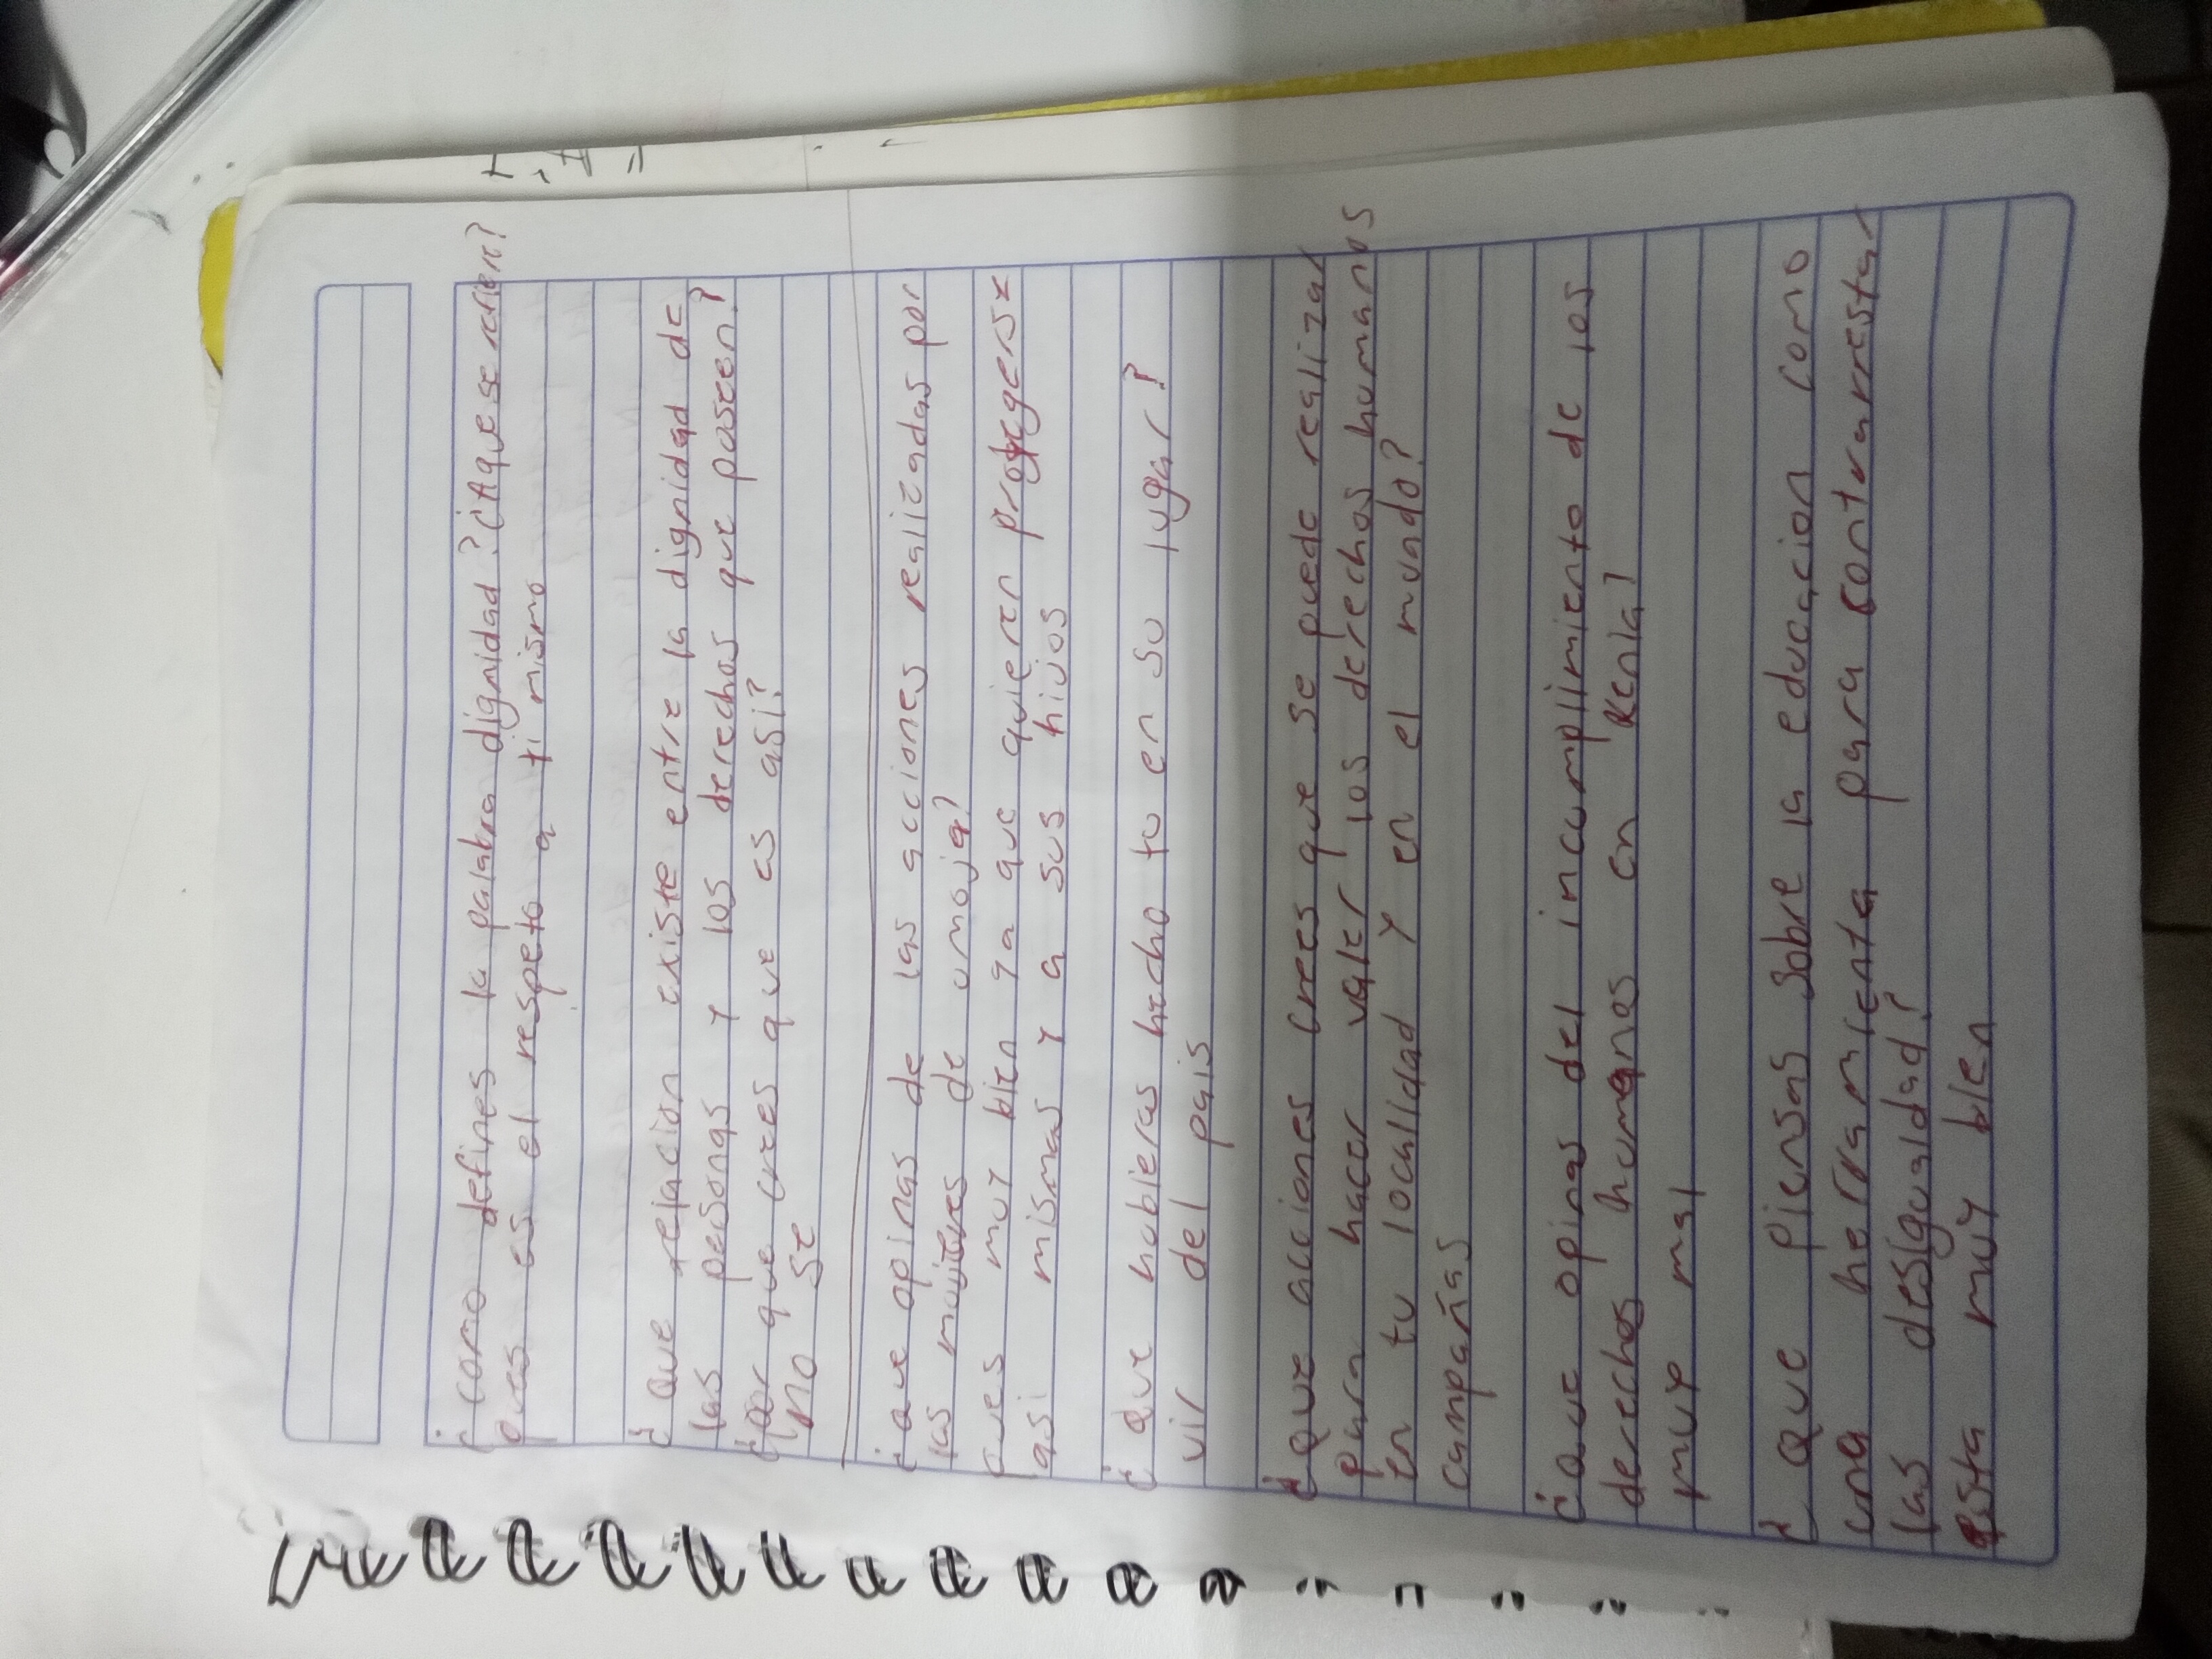 ¿como defines la palabra dignidad? ¿Aque se refiere?
pues es el respeto a ti mismo
¿que relacion existe entre la dignidad de
las pesonas y los derechos que poseen?
¿por que crees que es asi?
no se
¿que opinas de las acciones realizadas por
las mujeres de umoja?
pues muy bien ya que quieren protegerse
asi mismas y a sus hijos
¿Que hubieras hecho tu en su lugar?
vir del pais
¿Que acciones crees que se puede realizar
para hacer valer los derechos humanos
en tu localidad y en el mundo?
campañas
¿que opinas del incumplimiento de los
derechos humanos en Kenia?
muy mal
¿Que piensas sobre la educacion como
una herramienta para contrarrestar
las desigualdad?
Esta muy bien